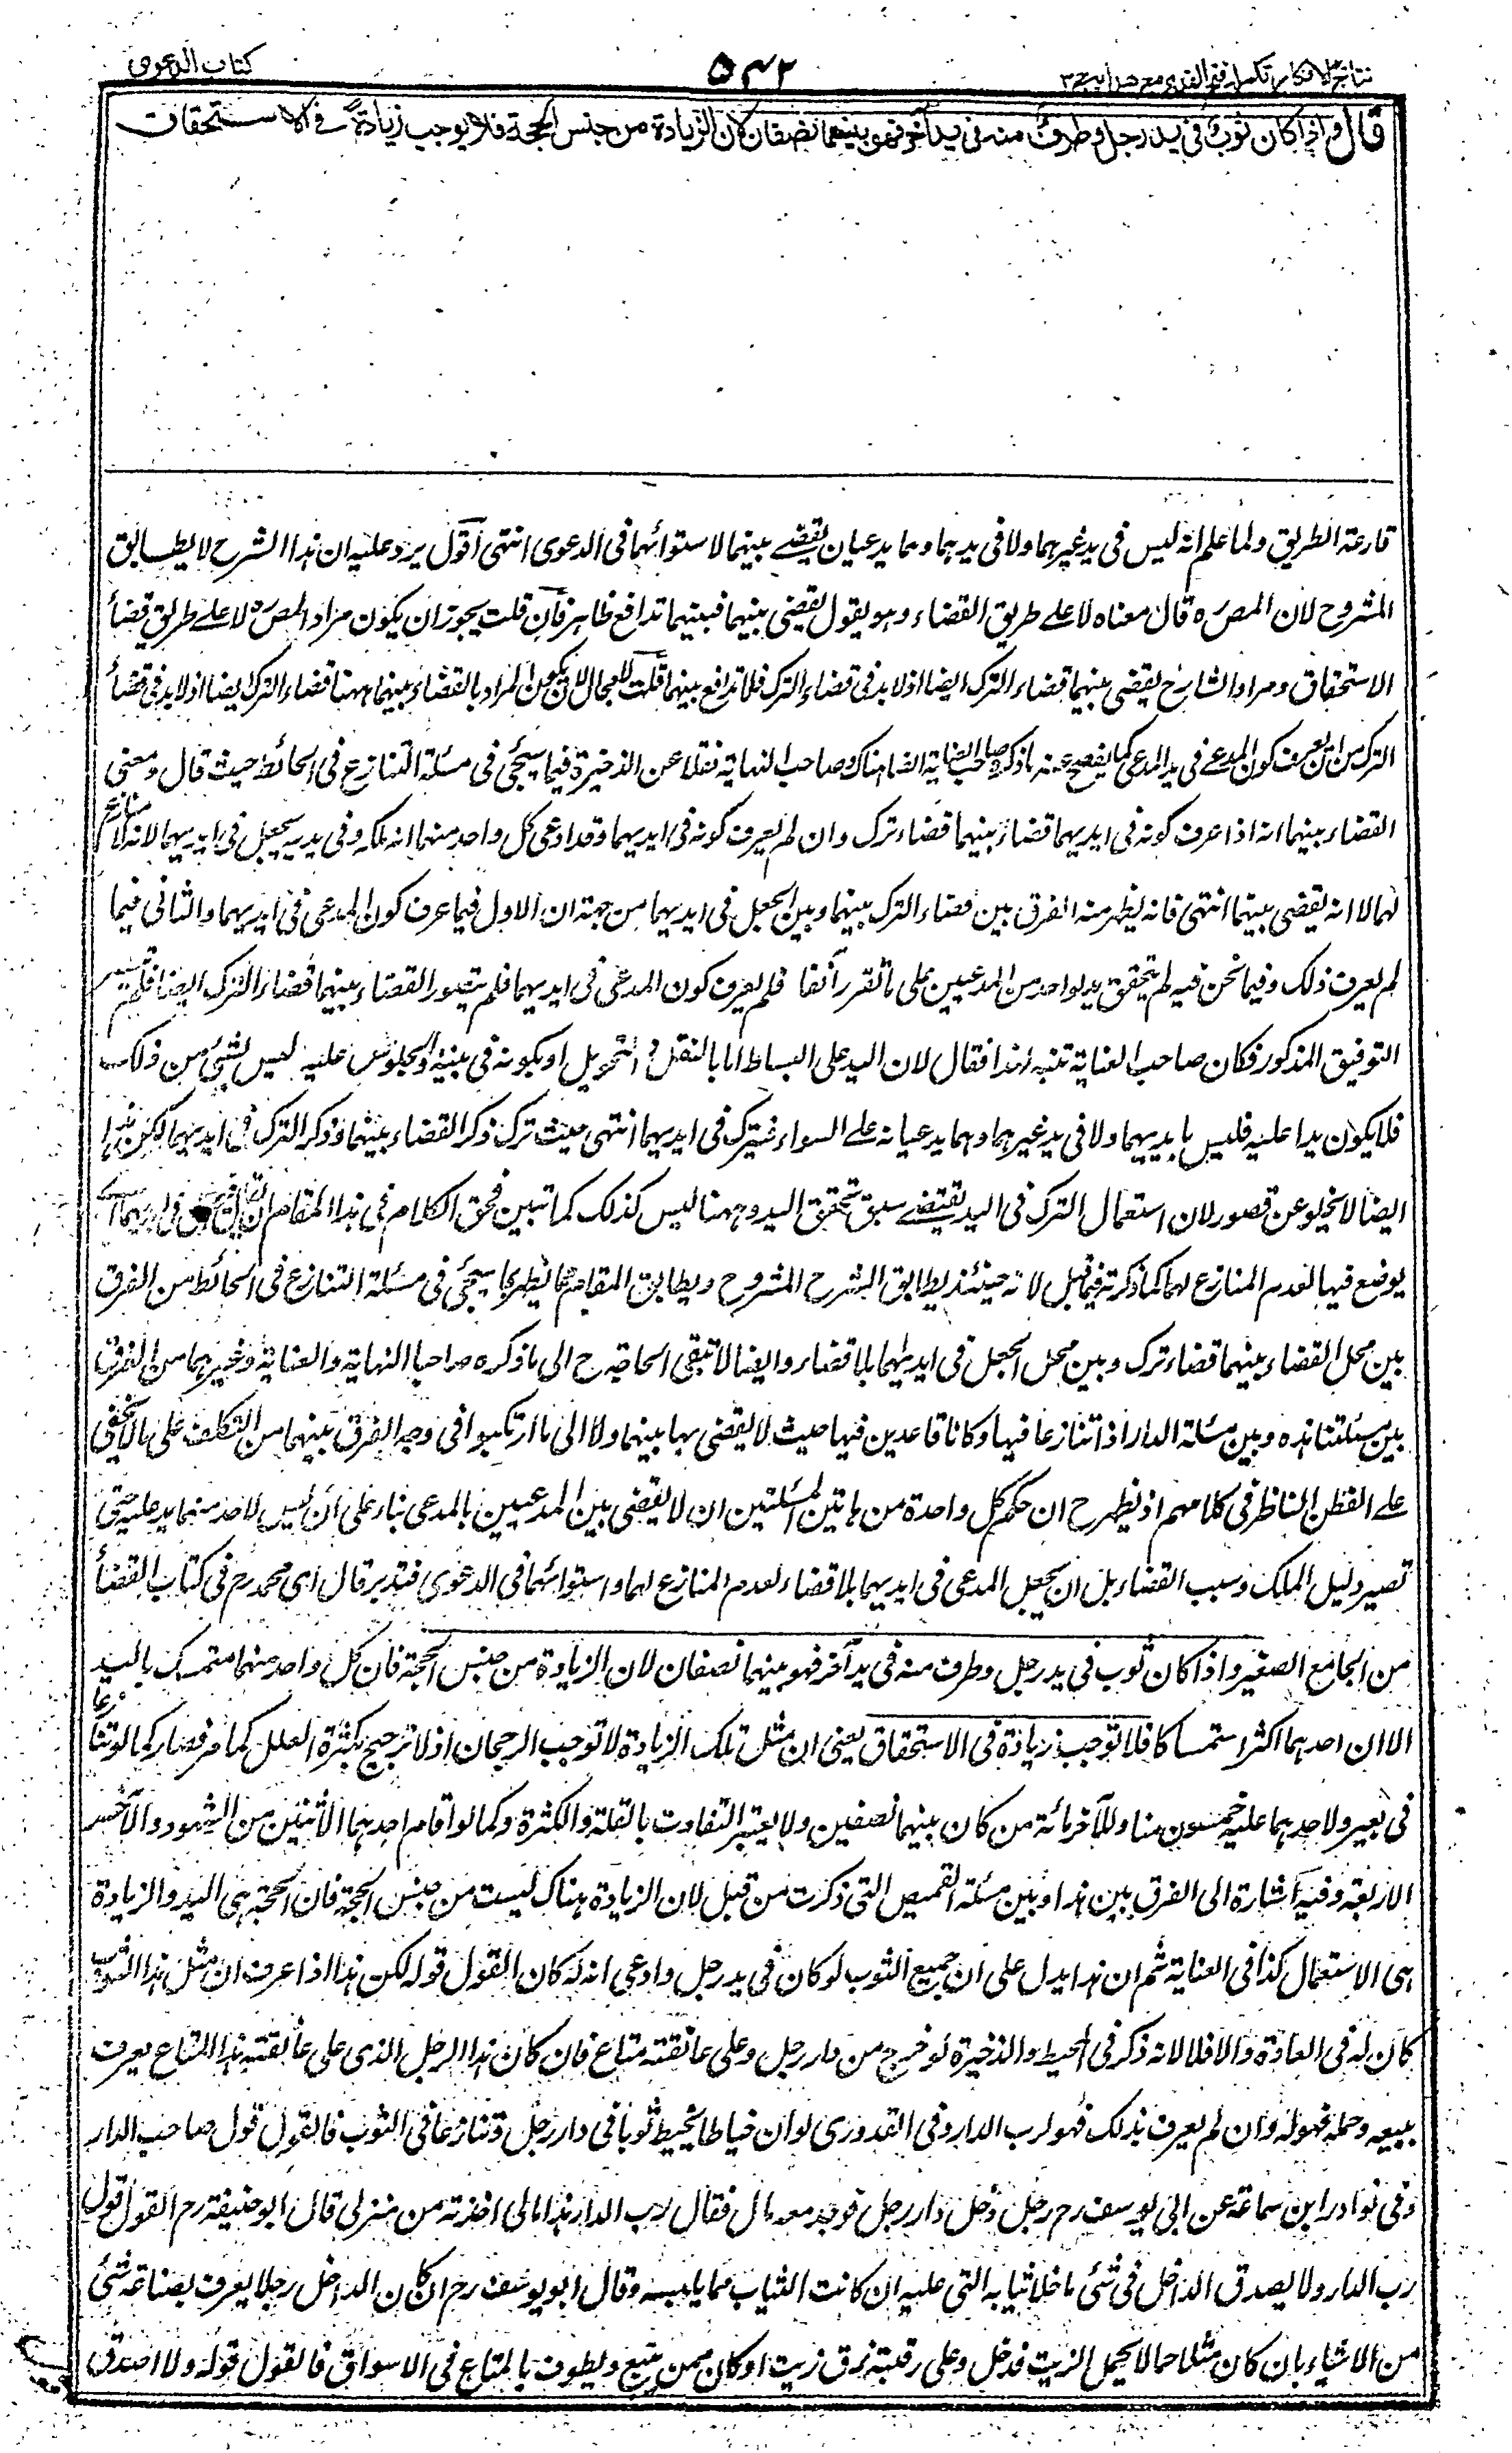 نتائج الافكار تكملة فتح القدير مع هداية ج ٣
٥٤٢
كتاب الدعوى
قال واذا كان ثوب في يد رجل وطرف منه في يد آخر فهو بينهما نصفان لان الزيادة من جنس الحجة فلا يوجب زيادة في الاستحقاق
قارعة الطريق ولما علم انه ليس في يد غيرهما ولا في يدهما وهما يدعيان يقضے بينهما لاستوائهما في الدعوى انتهى اقول يرد عليه ان هذا الشرح لا يطابق
المشروح لان المصره قال معناه لا علے طريق القضاء وهو يقول يقضى بينهما فبينهما تدافع ظاهر فان قلت يجوز ان يكون مراد المصره لا علے طريق قضأ
الاستحقاق ومراد الشارح يقضى بينهما قضاء الترك ايضا اذ لا بد في قضاء الترك فلا تدافع بينهما قلت لا مجال لان يكون المراد بالقضاء بينهما ههنا قضاء الترك ايضا اذ لا بد في قضأ
الترك من ان يعرف كون المدعے في يد المدعى كما يفصح عنه ما ذكره صاحب العناية ايضا هناك وصاحب النهاية نقلا عن الذخيرة فيما سيجئ في مسئلة التنازع في الحائط حيث قال ومعنى
القضاء بينهما انه اذا عرف كونه في ايديهما قضاء بينهما قضاء ترك وان لم يعرف كونه في ايديهما وقد ادعى كل واحد منهما انه ملكه وفى يديه يجعل في ايديهما لانه لا منازع
لهما لا انه يقضى بينهما انتهى فانه يظهر منه الفرق بين قضاء الترك بينهما وبين الجعل في ايديهما من جهة ان الاول فيما عرف كون المدعى في ايديهما والثانى فيما
لم يعرف ذلك وفيما نحن فيه لم يتحقق يد لواحد من المدعيين على ما تقرر آنفا فلم يعرف كون المدعى في ايديهما فلم يتصور القضاء بينهما قضاء الترك ايضا فلم يتيسر
التوفيق المذكور فكان صاحب العناية تنبه لهذا فقال لان اليد على البساط اما بالنقل والتحويل او بكونه في بيته والجلوس عليه ليس بشئ من ذلك
فلا يكون يدا عليه فليس بايديهما ولا في يد غيرهما وهما يدعيانه علے السواء فيترك في ايديهما انتهى حيث ترك ذكر القضاء بينهما وذكر الترك في ايديهما لكن هذا
ايضا لا يخلو عن قصور لان استعمال الترك في اليد يقتضے سبق تحقق اليد وههنا ليس كذلك كما تبين فحق الكلام في هذا المقام ان في ايديهما اے
يوضع فيها لعدم المنازع لهما كما ذكرته فيما قبل لانه حينئذ يطابق الشرح المشروح ويطابق المقام مما يظهر مما سيجئ في مسئلة التنازع في الحائط من الفرق
بين محل القضاء بينهما قضاء ترك وبين محل الجعل في ايديهما بلا قضاء وايضا لا تبقى الحاجة ح الى ما ذكره صاحبا النهاية والعناية وغيرهما من الفرق
بين مسئلتنا هذه وبين مسئلة الدار اذا تنازعا فيها وكانا قاعدين فيها حيث لا يقضى بها بينهما ولا الى ما ارتكبوا في وجه الفرق بينهما من التكلف على ما لا يخفى
علے الفطن الناظر في كلامهم اذ يظهر ح ان حكم كل واحدة من هاتين المسئلتين ان لا يقضى بين المدعيين بالمدعى بناء على ان ليس لاحد منهما يد عليه حتى
تصير دليل الملك وسبب القضاء بل ان يجعل المدعى في ايديهما بلا قضاء لعدم المنازع لهما واستوائهما في الدعوى فتدبر قال اى محمد رح في كتاب القضأ
من الجامع الصغير واذا كان ثوب في يد رجل وطرف منه في يد آخر فهو بينهما نصفان لان الزيادة من جنس الحجة فان كل واحد منهما متمسك باليد
الا ان احدهما اكثر استمساكا فلا توجب زيادة في الاستحقاق يعنى ان مثل تلك الزيادة لا توجب الرجحان اذ لا ترجيح بكثرة العلل كما مر فصار كما لو تنازعا
في بعير ولاحدهما عليه خمسون منا وللآخر مائة من كان بينهما نصفين ولا يعتبر التفاوت بالقلة والكثرة وكما لو اقام احدهما الاثنين من الشهود والآخر
الاربعة وفيه اشارة الى الفرق بين هذا وبين مسئلة القميص التى ذكرت من قبل لان الزيادة هناك ليست من جنس الحجة فان الحجة هى اليد والزيادة
هى الاستعمال كذا في العناية ثم ان هذا يدل على ان جميع الثوب لو كان في يد رجل وادعى انه له كان القول قوله لكن هذا اذا عرف ان مثل هذا الثوب
كان له في العادة والا فلا لانه ذكر في المحيط والذخيرة لو خرج من دار رجل وعلى عاتقه متاع فان كان هذا الرجل الذى على عاتقه هذا المتاع يعرف
ببيعه وحمله فهو له وان لم يعرف بذلك فهو لرب الدار وفى القدورى لو ان خياطا يخيط ثوبا في دار رجل وتنازعا في الثوب فالقول قول صاحب الدار
وفى نوادر ابن سماعة عن ابى يوسف رح رجل دخل دار رجل فوجد معه مال فقال رب الدار هذا مالى اخذته من منزلى قال ابو حنيفة رح القول قول
رب الدار ولا يصدق الداخل في شئ ما خلا ثيابه التى عليه ان كانت الثياب مما يلبسه وقال ابو يوسف رح ان كان الداخل رجلا يعرف بصناعة شئ
من الاشياء بان كان مثلا حمالا يحمل الزيت فدخل وعلى رقبته زق زيت او كان ممن يبيع ويطوف بالمتاع في الاسواق فالقول قوله ولا اصدق